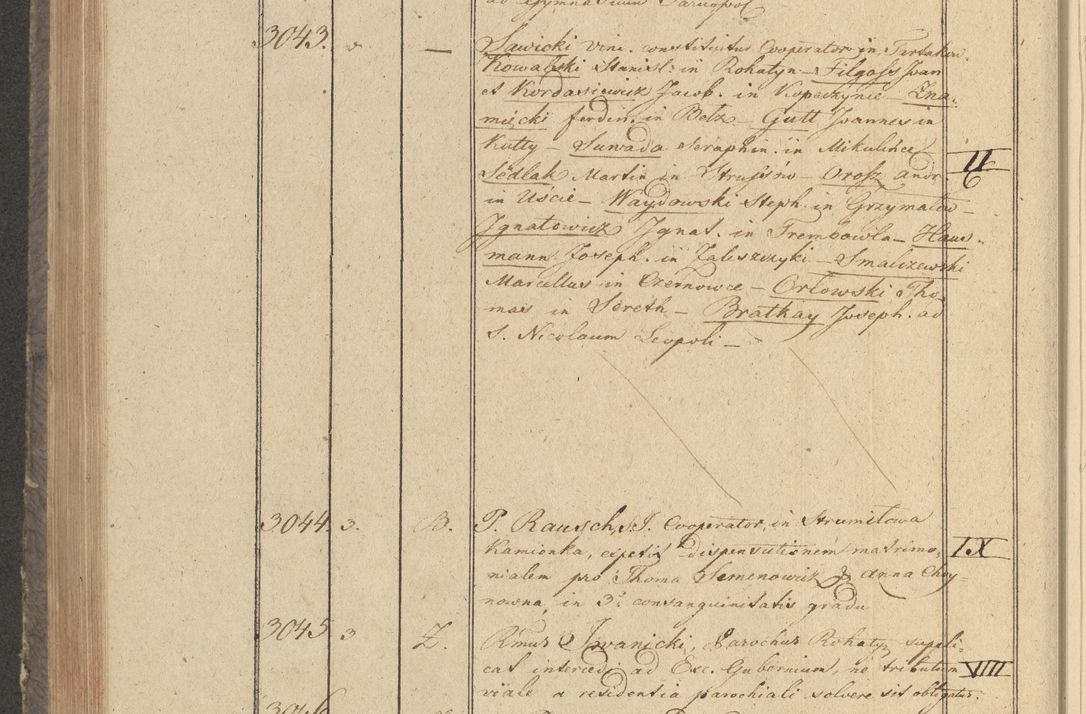 ad Gymnasium Tarnopol
3043. – Sawicki Vinc. constitutus Cooperator in Tartakow
Kowalski Stanisl: in Rohatyn – Filgass Joan
et Kordasiewicz Jacob. in Kopeczynie – Zna-
miecki ferdin. in Belz – Gutt Joannes in
Kutty – Suwada Seraphin. in Mikulińce –
Sedlak Martin in Strussów – Orosz Andr II/6
in Uście – Waydowski Steph. in Grzymałow –
Jgnatowicz Jgnat. in Trembowla – Haus-
mann Joseph. in Zaleszczyki – Smaliszewski
Marcellus in Czernowce – Orłowski Tho-
mas in Sereth – Bratkay Joseph. ad
S. Nicolaum Leopoli –
3044 3. B. P. Rausch, S.J. Cooperator, in Strumilowa
Kamionka, expetit dispensationem matrimo- IX
nialem pro Thoma Semenowicz & Anna Choy-
nowna, in 3º consanguinitatis gradu
3045 3 Z. Rmus Iwanicki, Parochus Rohatyn suppli-
cat intercedi ad Exc. Gubernium, ne tributum VIIII
viale a residentia parochiali solvere sit obligatus.
3046